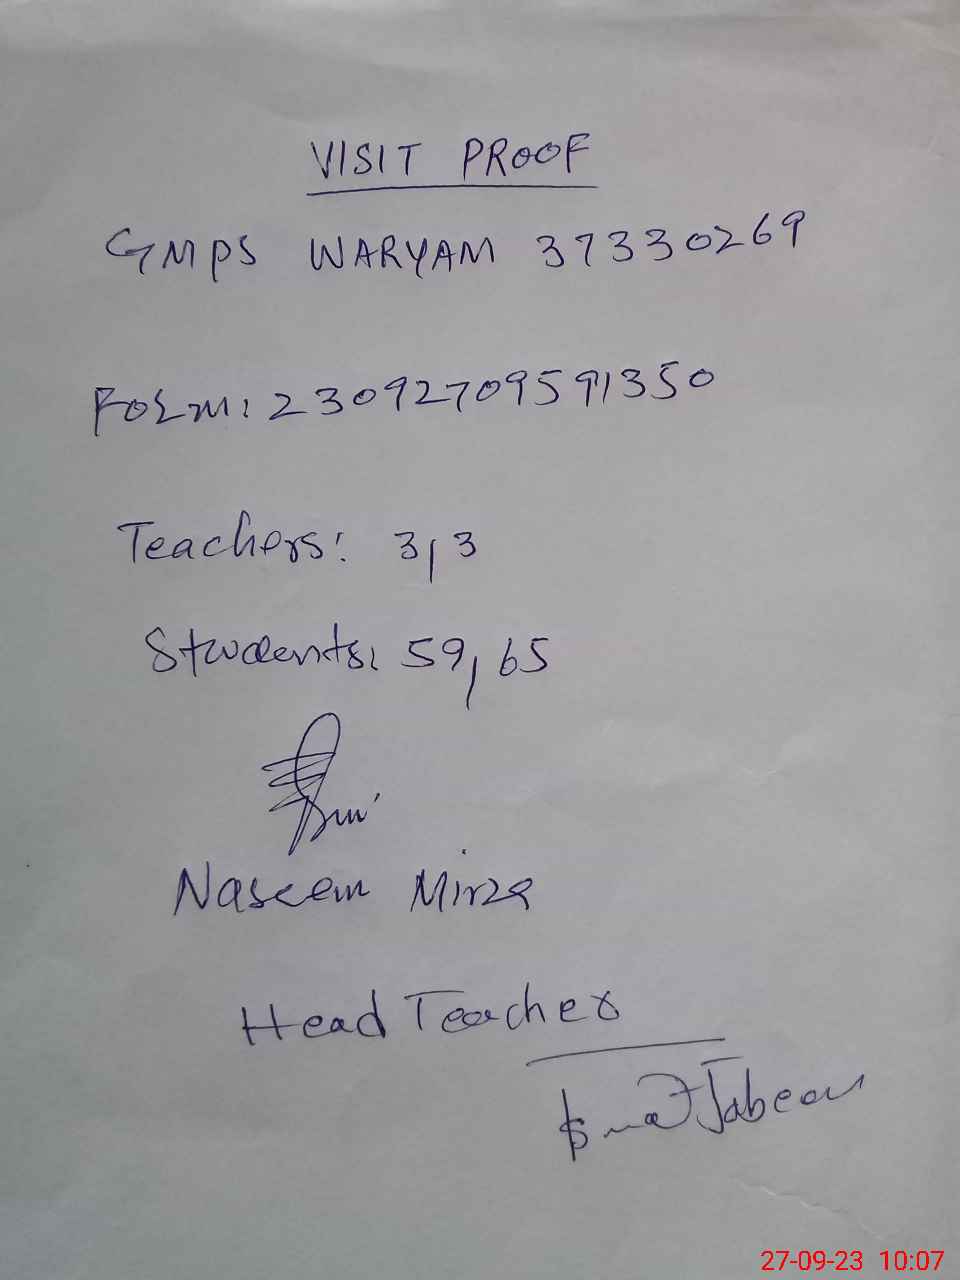 VISIT PROOF
GMPS WARYAM 37330269
Form: 23092709591350
Teachers: 3, 3
Students: 59, 65
Naseem Mirza
Head Teacher
Jabeen
27-09-23 10:07